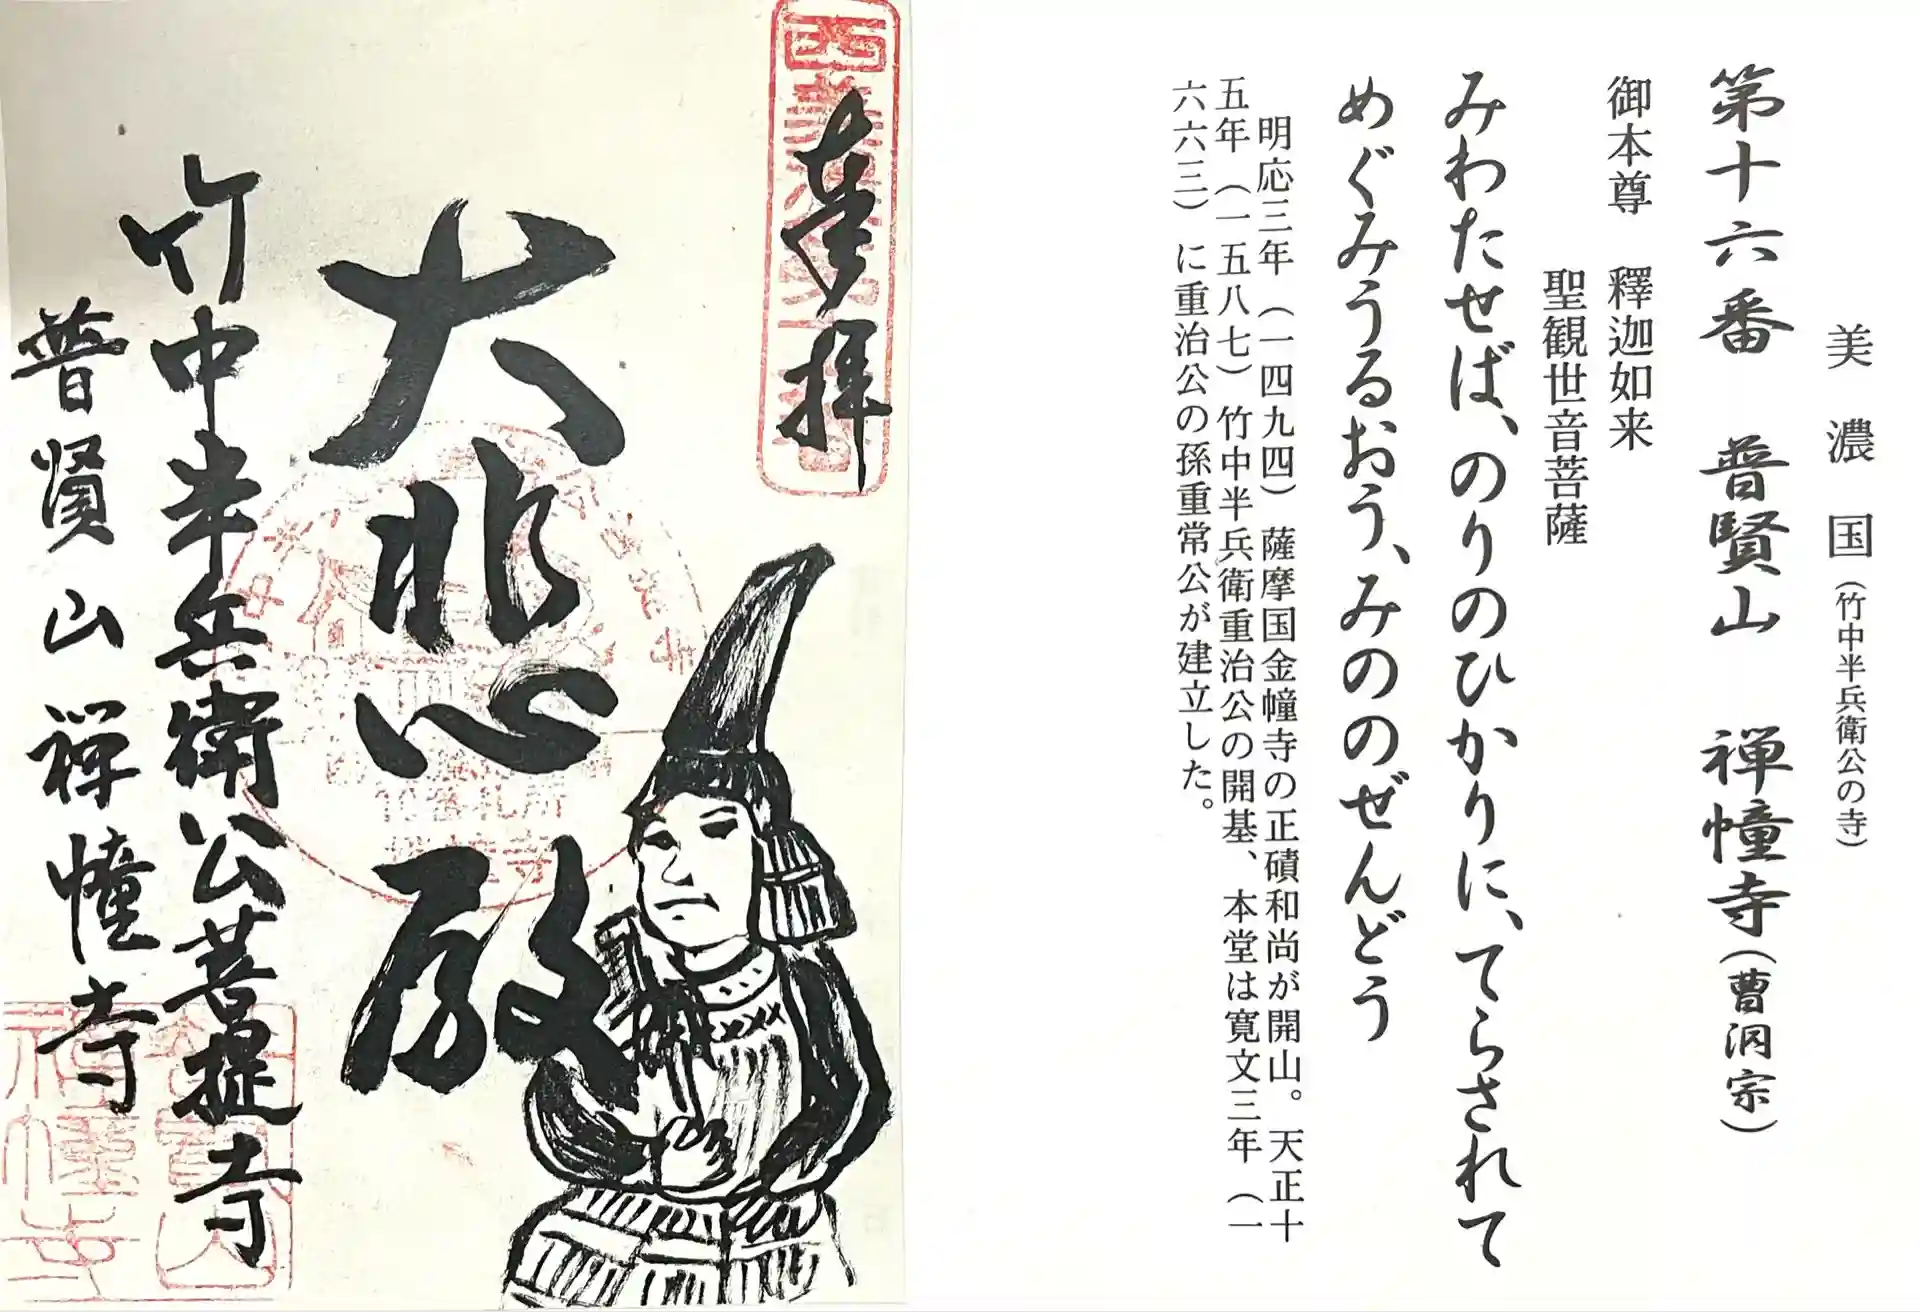 美濃国(竹中半兵衛公の寺)
第十六番 普賢山 禅幢寺(曹洞宗)
御本尊 釋迦如来
聖観世音菩薩
みわたせば、のりのひかりに、てらされて
めぐみうるおう、みののぜんどう
明応三年(一四九四)薩摩国金幢寺の正磧和尚が開山。天正十
五年(一五八七)竹中半兵衛重治公の開基、本堂は寛文三年(一
六六三)に重治公の孫重常公が建立した。
奉拝
大悲殿
竹中半兵衛公菩提寺
普賢山禅幢寺